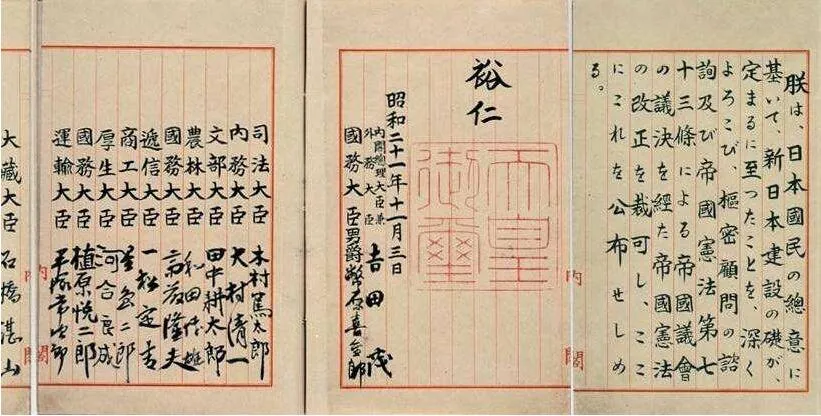 朕は、日本國民の總意に
基いて、新日本建設の礎が、
定まるに至つたことを、深く
よろこび、樞密顧問の諮
詢及び帝國憲法第七
十三條による帝國議會
の議決を経た帝國憲法
の改正を裁可し、ここ
にこれを公布せしめ
る。
裕仁
天皇御璽
昭和二十一年十一月三日
内閣總理大臣兼
外務大臣 吉田茂
國務大臣 男爵幣原喜重郎
司法大臣 木村篤太郎
内務大臣 大村清一
文部大臣 田中耕太郎
農林大臣 和田博雄
國務大臣 斎藤隆夫
遞信大臣 一松定吉
商工大臣 星島二郎
厚生大臣 河合良成
國務大臣 植原悦二郎
運輸大臣 平塚常次郎
大藏大臣 石橋湛山
内閣
内閣